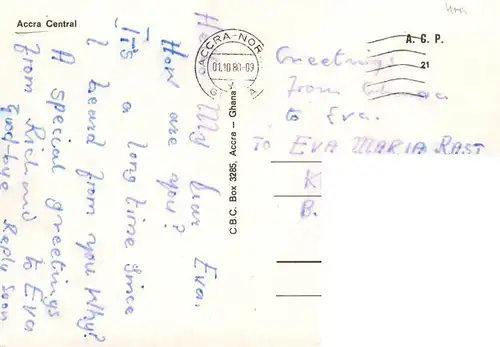 Accra Central
Hello My Dear Eva.
How are you?
It's a long time since
I heard from you Why?
A special greetings
from Richard to Eva
Good-bye Reply Soon
C.B.C. Box 3285, Accra – Ghana
ACCRA-NOR
01.10.80-09
A. G. P.
21
Greetings
from Ghana
to Eva.
To EVA MARIA RAST
K
B.